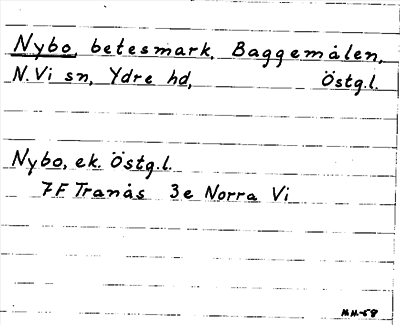 Nybo, betesmark, Baggemålen,
N. Vi sn, Ydre hd, Östg.l.
Nybo, ek. Östg.l.
7F Tranås 3e Norra Vi
MM-58